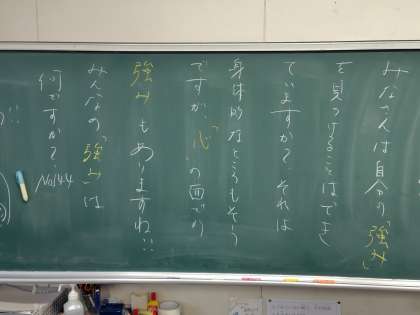 みなさんは自分の「強み」
を見つけることはでき
ていますか？それは
身体的なところもそう
ですが、“心”の面での
強みもありますね!!
みんなの「強み」は
何ですか？ No.144